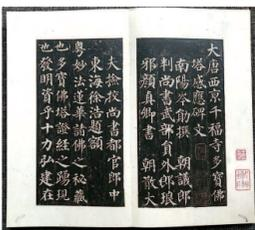 大唐西京千福寺多寶佛
塔感應碑文
南陽岑勛撰 朝議郎
判尚書武部員外郎琅
邪顏真卿書 朝散大
大撿校尚書都官郎中
東海徐浩題額
粵妙法蓮華諸佛之秘藏
也多寶佛塔證經之踴現
也發明資乎十力弘建在